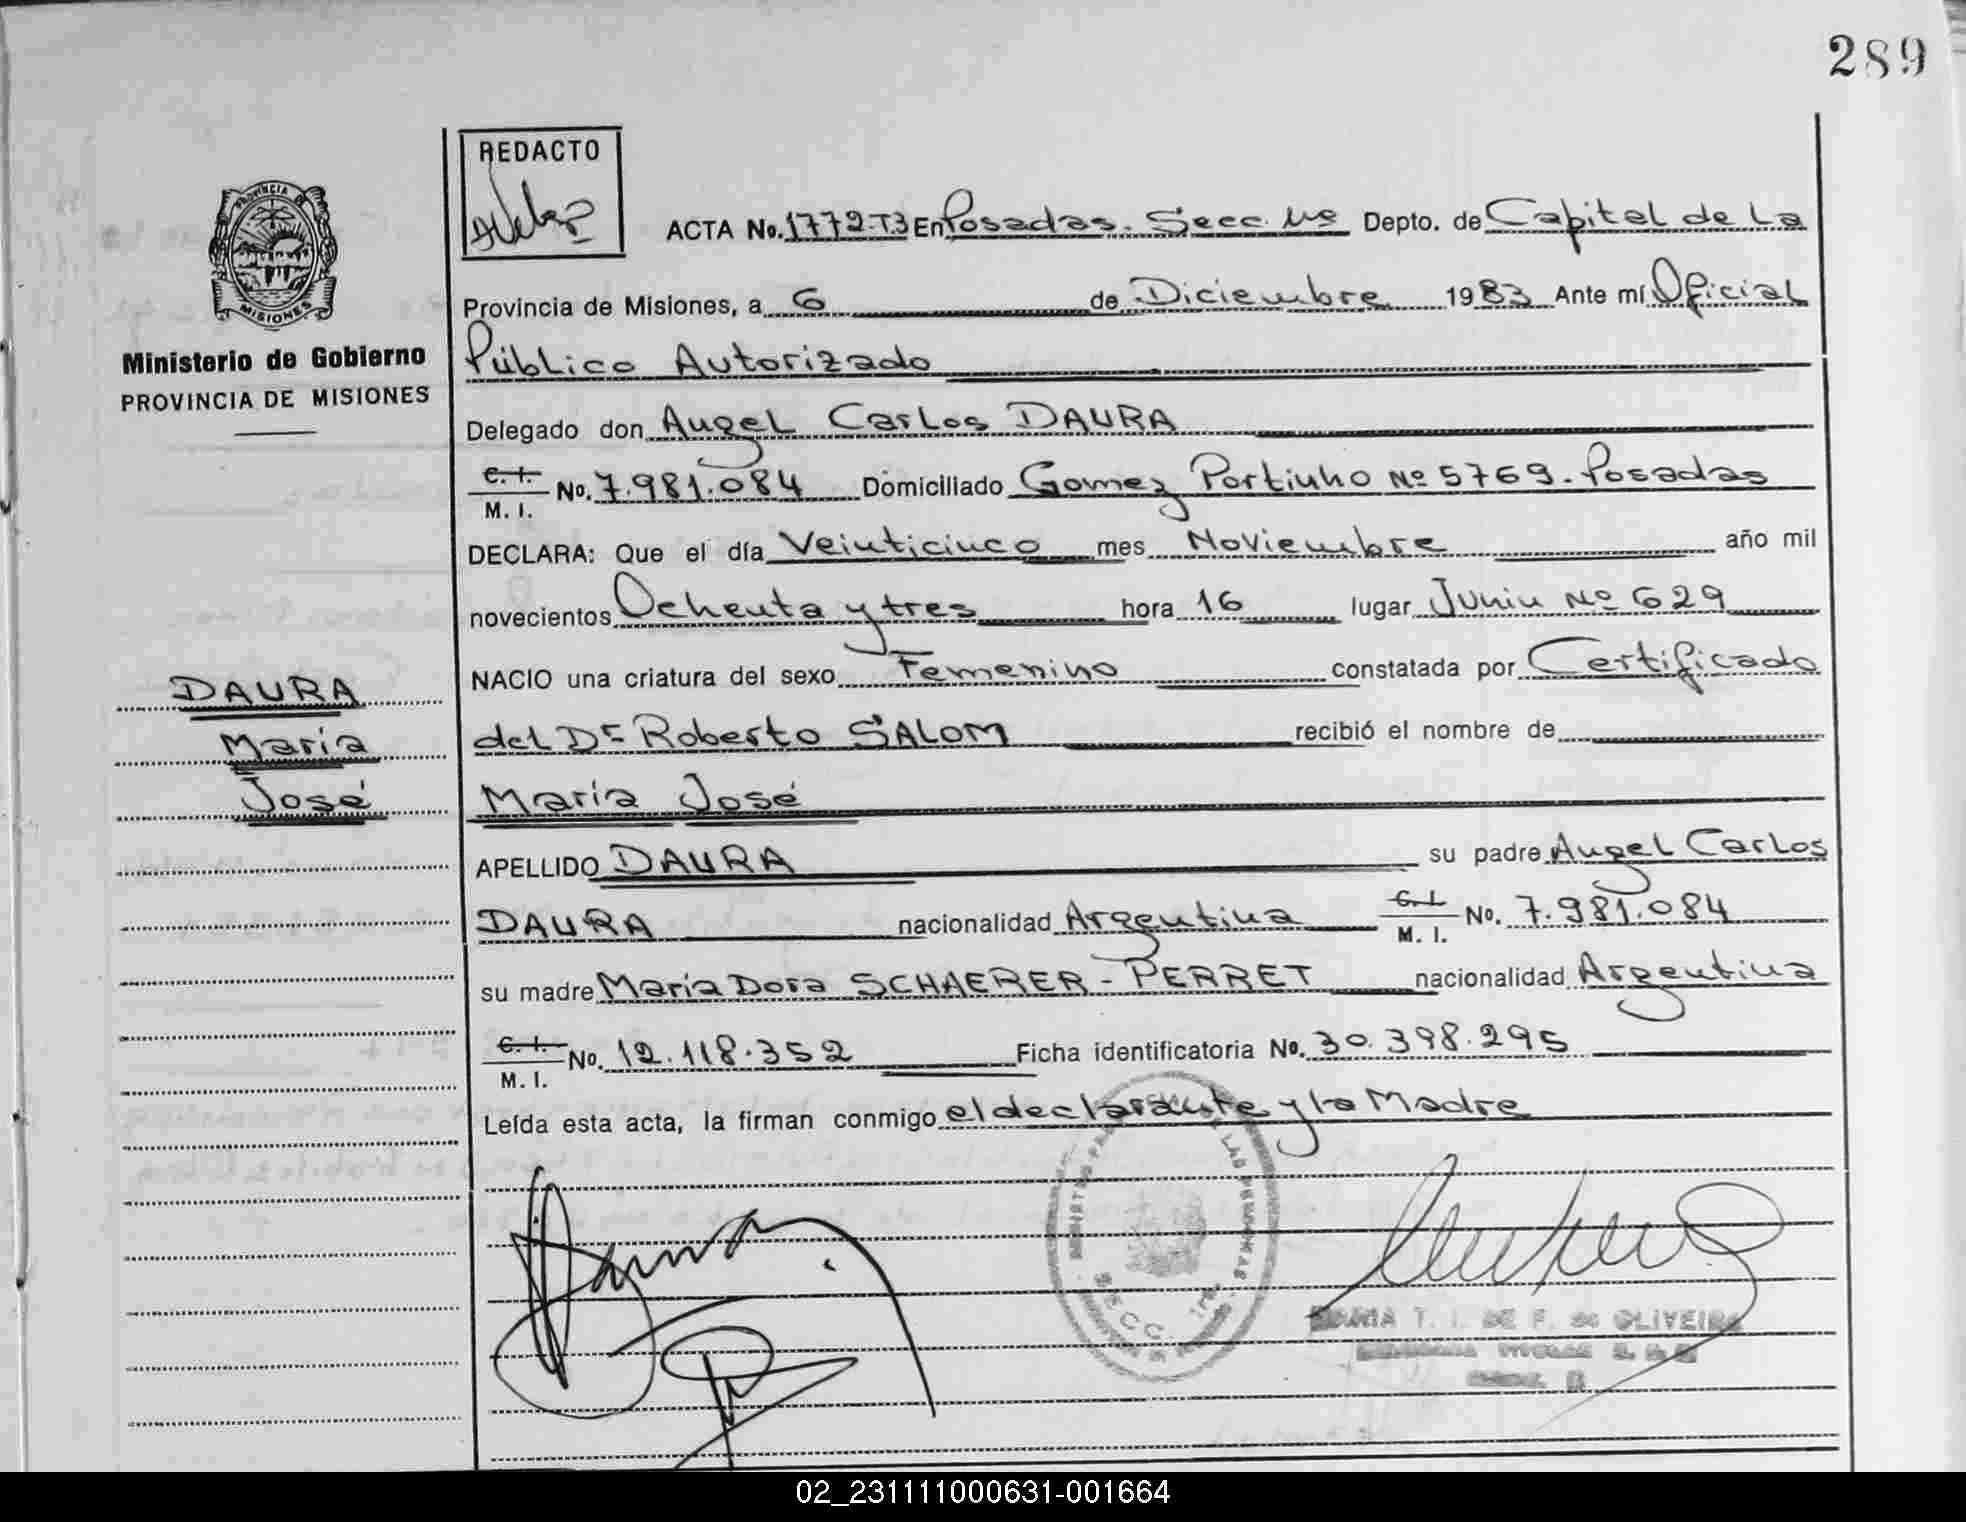 289
REDACTO
PROVINCIA DE
MISIONES
ACTA No. 1772-T3 En Posadas. Secc. Depto. de Capital de La
Provincia de Misiones, a 6 de Diciembre 1983 Ante mí Oficial
Ministerio de Gobierno
Público Autorizado
PROVINCIA DE MISIONES
Delegado don Angel Carlos DAURA
C. I.
M. I. No. 7.981.084 Domiciliado Gomez Portinho Nº 5769. Posadas
DECLARA: Que el día Veinticinco mes Noviembre año mil
novecientos Ochenta y tres hora 16 lugar Junin Nº 629
NACIO una criatura del sexo Femenino constatada por Certificado
DAURA
del Dr Roberto SALOM recibió el nombre de
María
José
María José
APELLIDO DAURA su padre Angel Carlos
DAURA nacionalidad Argentina C. I.
M. I. No. 7.981.084
su madre María Dora SCHAERER - PERRET nacionalidad Argentina
C. I.
M. I. No. 12.118.352 Ficha identificatoria No. 30.398.295
Leída esta acta, la firman conmigo el declarante y la Madre
DE LAS PERSONAS
SECC.
T. I. DE F. de OLIVEIRA
02_231111000631-001664